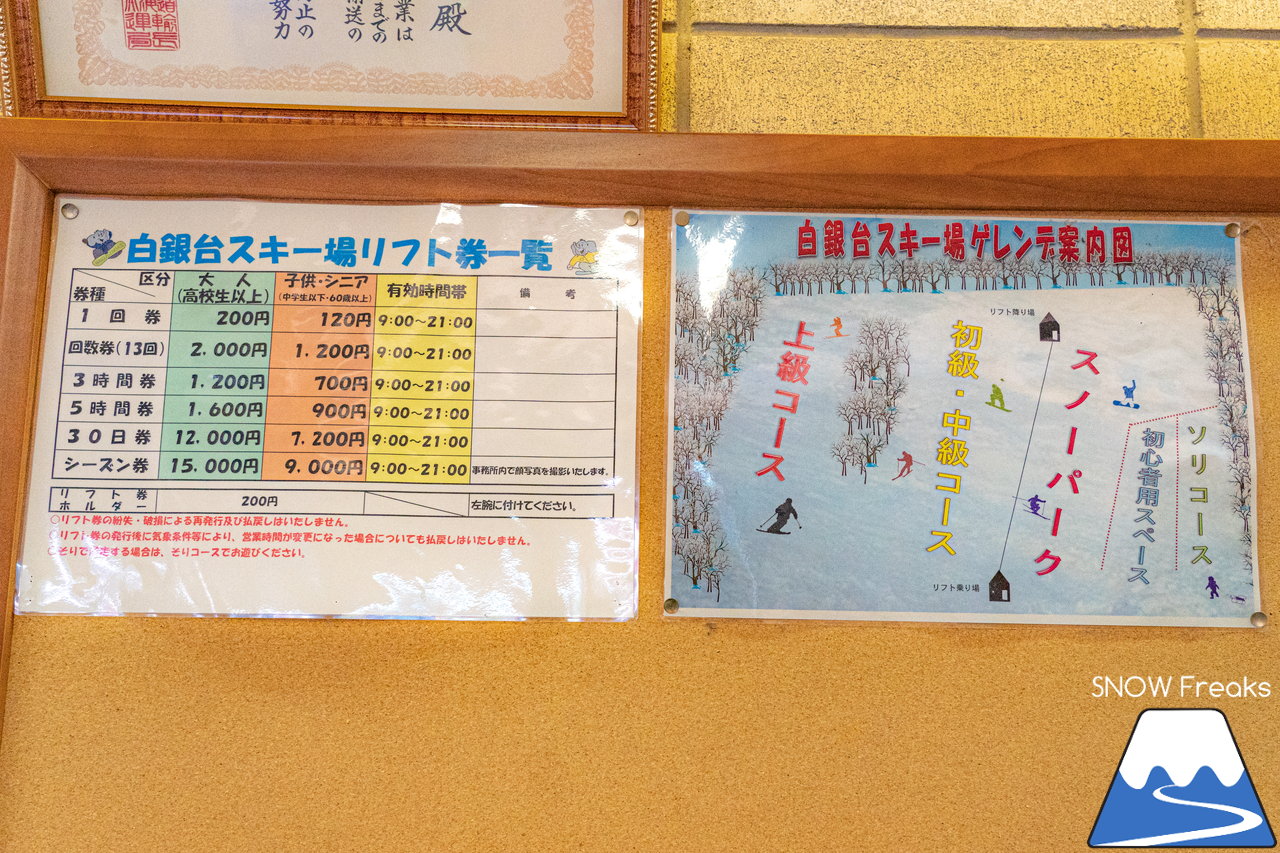 殿
業は
までの
輸送の
止の
努力
白銀台スキー場リフト券一覧
区分
券種
大人
(高校生以上)
子供・シニア
(中学生以下・60歳以上)
有効時間帯
備考
1回券 200円 120円 9:00〜21:00
回数券(13回) 2.000円 1.200円 9:00〜21:00
3時間券 1.200円 700円 9:00〜21:00
5時間券 1.600円 900円 9:00〜21:00
30日券 12.000円 7.200円 9:00〜21:00
シーズン券 15.000円 9.000円 9:00〜21:00 事務所内で顔写真を撮影いたします。
リフト券
ホルダー
200円
左腕に付けてください。
○リフト券の紛失・破損による再発行及び払戻しはいたしません。
○リフト券の発行後に気象条件等により、営業時間が変更になった場合についても払戻しはいたしません。
○そりで する場合は、そりコースでお遊びください。
白銀台スキー場ゲレンデ案内図
リフト降り場
上級コース
初級・中級コース
スノーパーク
初心者用スペース
ソリコース
リフト乗り場
SNOW Freaks